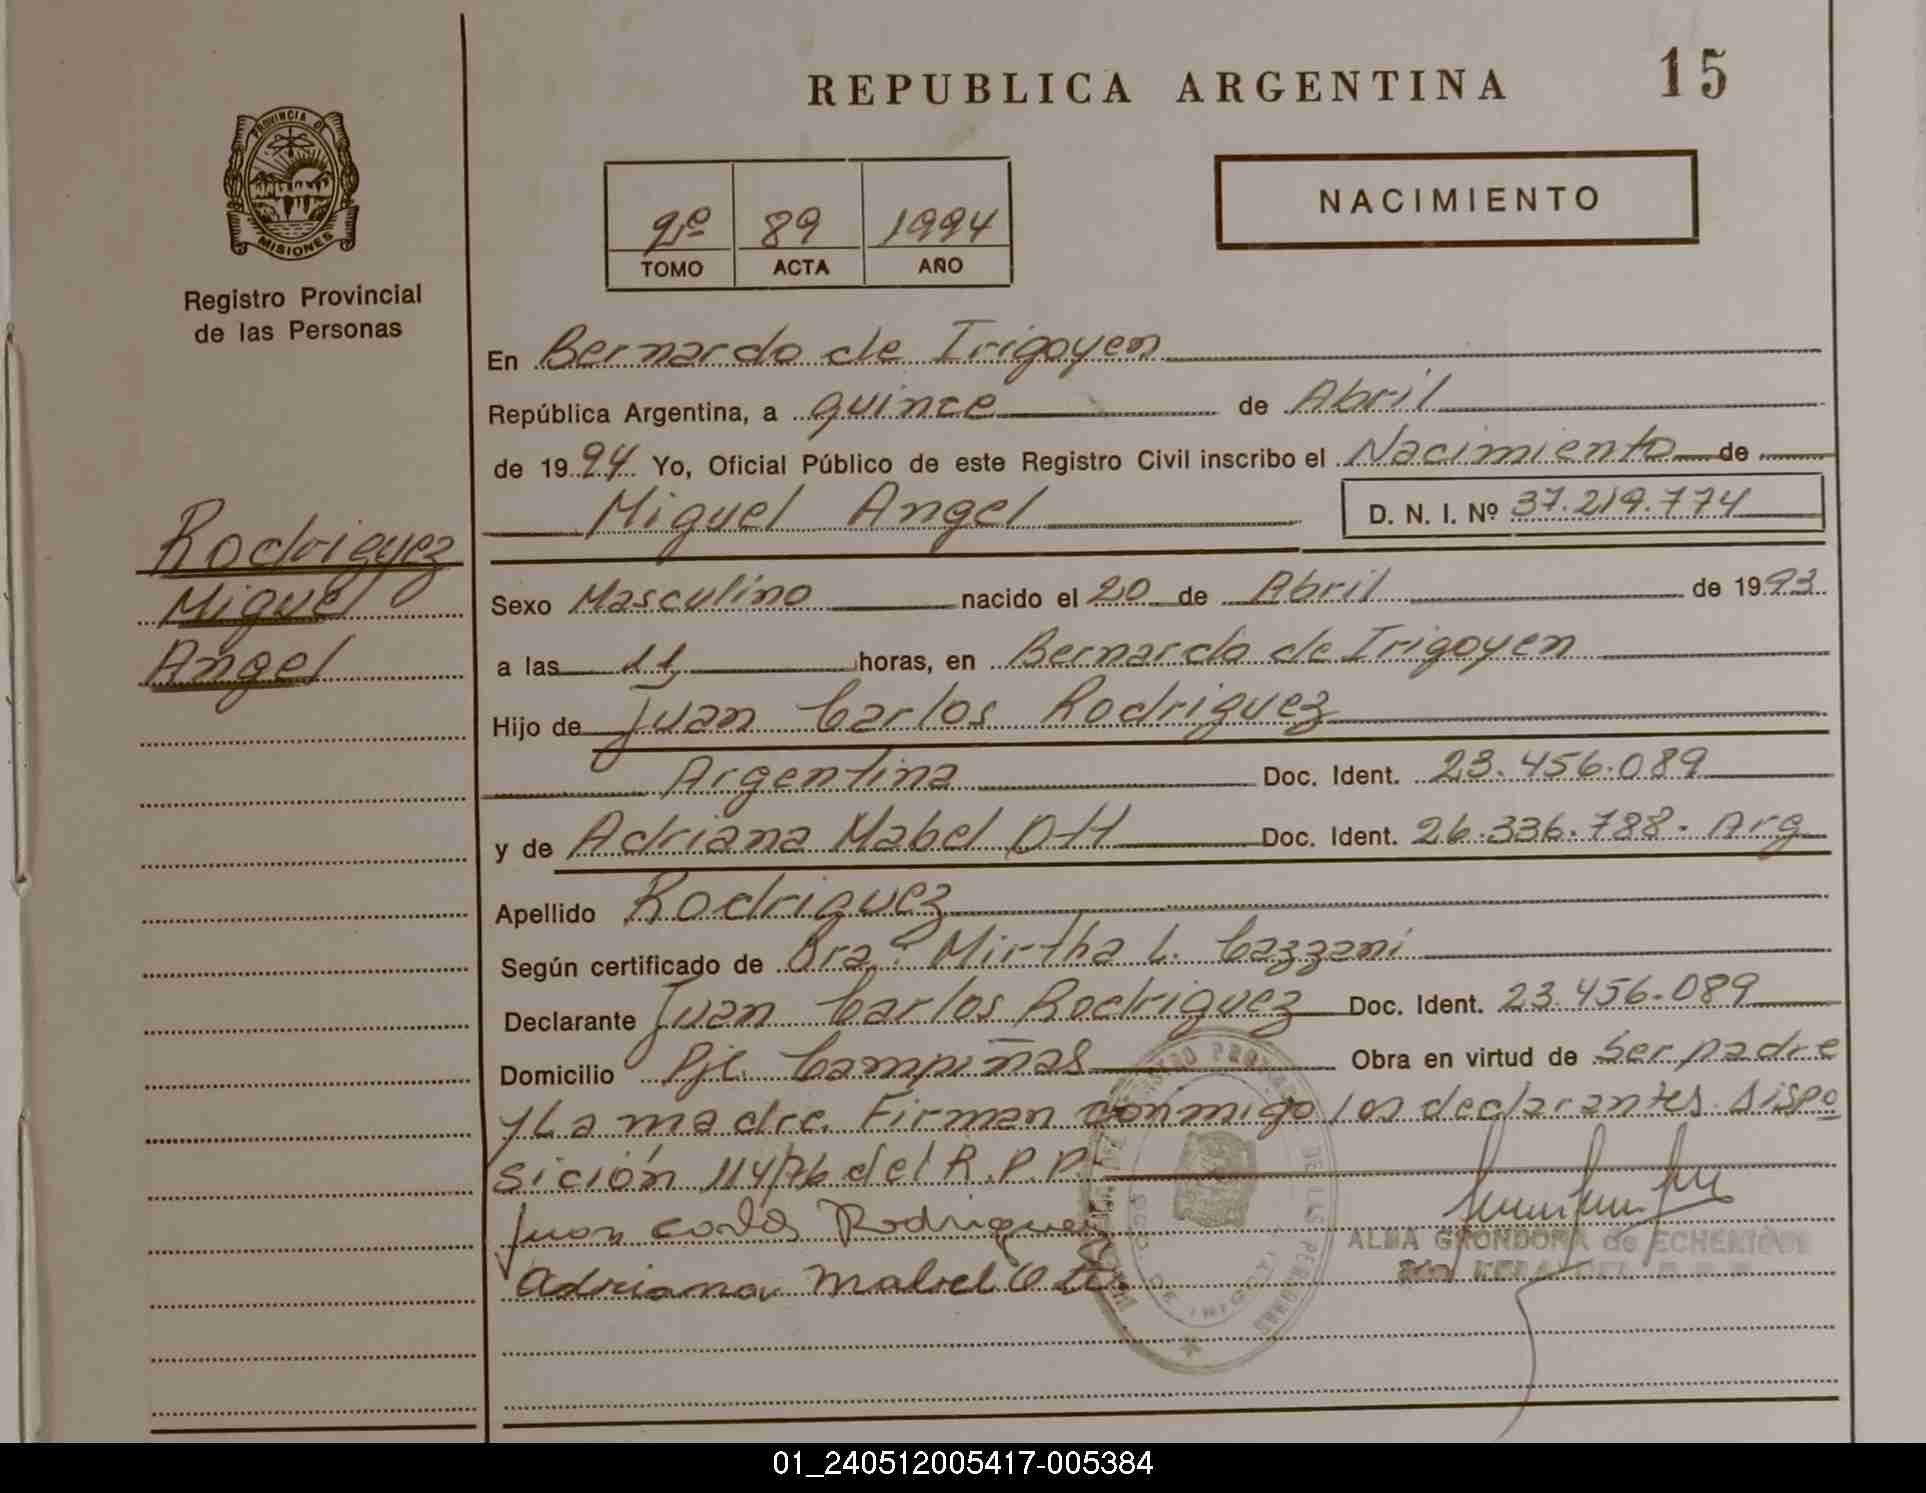 REPUBLICA ARGENTINA
15
PROVINCIA DE
MISIONES
Registro Provincial
de las Personas
2º 89 1994
TOMO ACTA AÑO
NACIMIENTO
Rodriguez
Miguel
Angel
En Bernardo de Irigoyen
República Argentina, a quince de Abril
de 1994 Yo, Oficial Público de este Registro Civil inscribo el Nacimiento de
Miguel Angel D. N. I. Nº 37.219.774
Sexo Masculino nacido el 20 de Abril de 1993
a las 11 horas, en Bernardo de Irigoyen
Hijo de Juan Carlos Rodriguez
Argentina Doc. Ident. 23.456.089
y de Adriana Mabel Ott Doc. Ident. 26.336.788. Arg
Apellido Rodriguez
Según certificado de Dra. Mirtha L. Cazzani
Declarante Juan Carlos Rodriguez Doc. Ident. 23.456.089
Domicilio Pje. Campiñas Obra en virtud de Ser padre
y La madre. Firman conmigo los declarantes. Dispo
sición 114/76 del R.P.P.
Juan carlos Rodriguez
Adriana Mabel Ott.
ALBA de
01_240512005417-005384